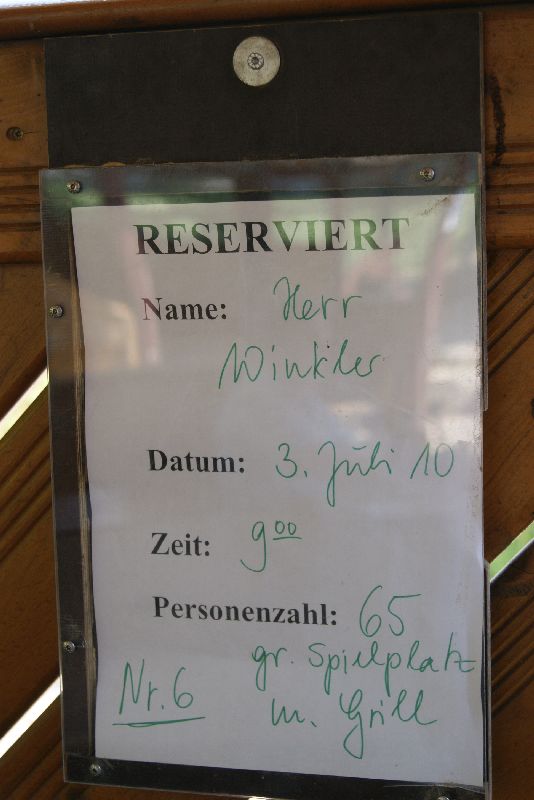 RESERVIERT
Name: Herr
Winkler
Datum: 3. Juli 10
Zeit: 9⁰⁰
Personenzahl: 65
gr. Spielplatz
Nr. 6 m. Grill